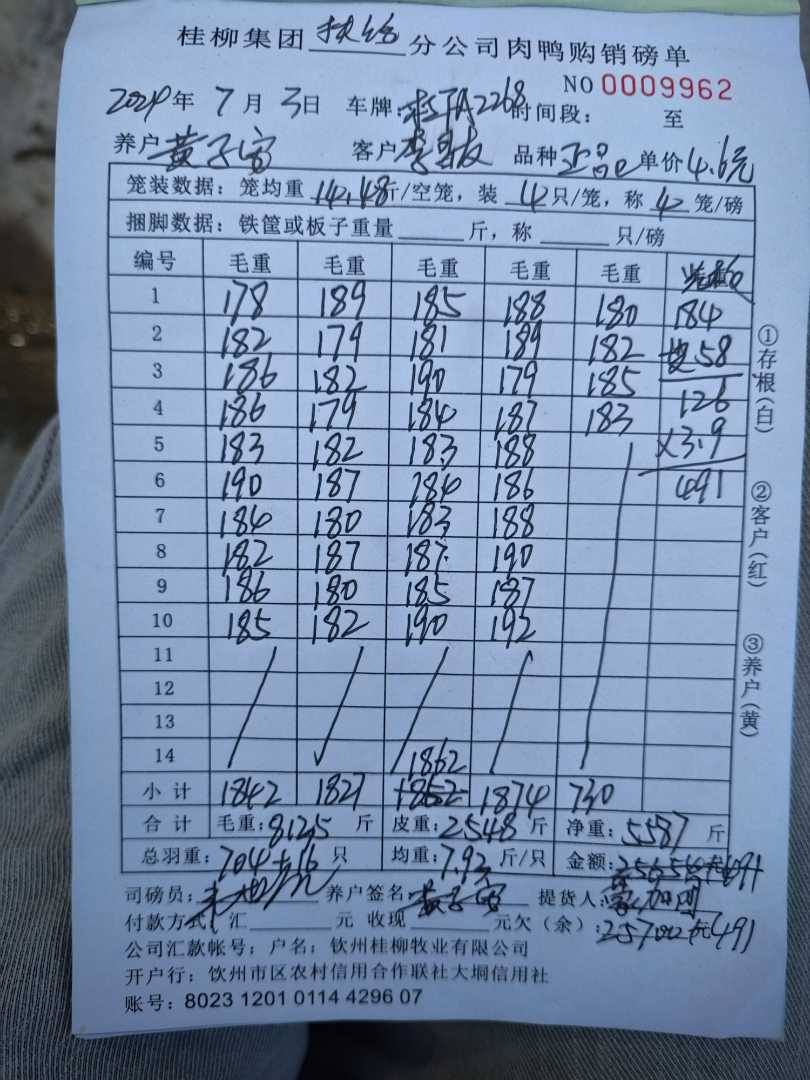 桂柳集团 扶绥 分公司肉鸭购销磅单
NO 0009962
2024年 7月 3日 车牌: A2268 时间段: 至
养户 黄子富 客户 李 板 品种 正品 单价 4.6元
笼装数据: 笼均重 14.48斤/空笼, 装 4只/笼, 称 4笼/磅
捆脚数据: 铁筐或板子重量 斤, 称 只/磅
编号 毛重 毛重 毛重 毛重 毛重
1 178 189 185 188 180 184
2 182 179 181 189 182 58
3 186 182 190 179 185 126
4 186 179 184 187 183 ×3.9
5 183 182 183 188 491
6 190 187 184 186
7 184 180 183 188
8 182 187 187 190
9 186 180 185 187
10 185 182 190 192
11
12
13
14 1862
小计 1842 1827 1852 1874 730
合计 毛重: 8125 斤 皮重: 2548 斤 净重: 5587 斤
总羽重: 704+16 只 均重: 7.93 斤/只 金额: 491
司磅员: 养户签名: 黄子富 提货人:
付款方式: 汇 元 收现 元欠(余): 25700 491
公司汇款帐号: 户名: 钦州桂柳牧业有限公司
开户行: 钦州市区农村信用合作联社大垌信用社
账号: 8023 1201 0114 4296 07
①存根(白)
②客户(红)
③养户(黄)